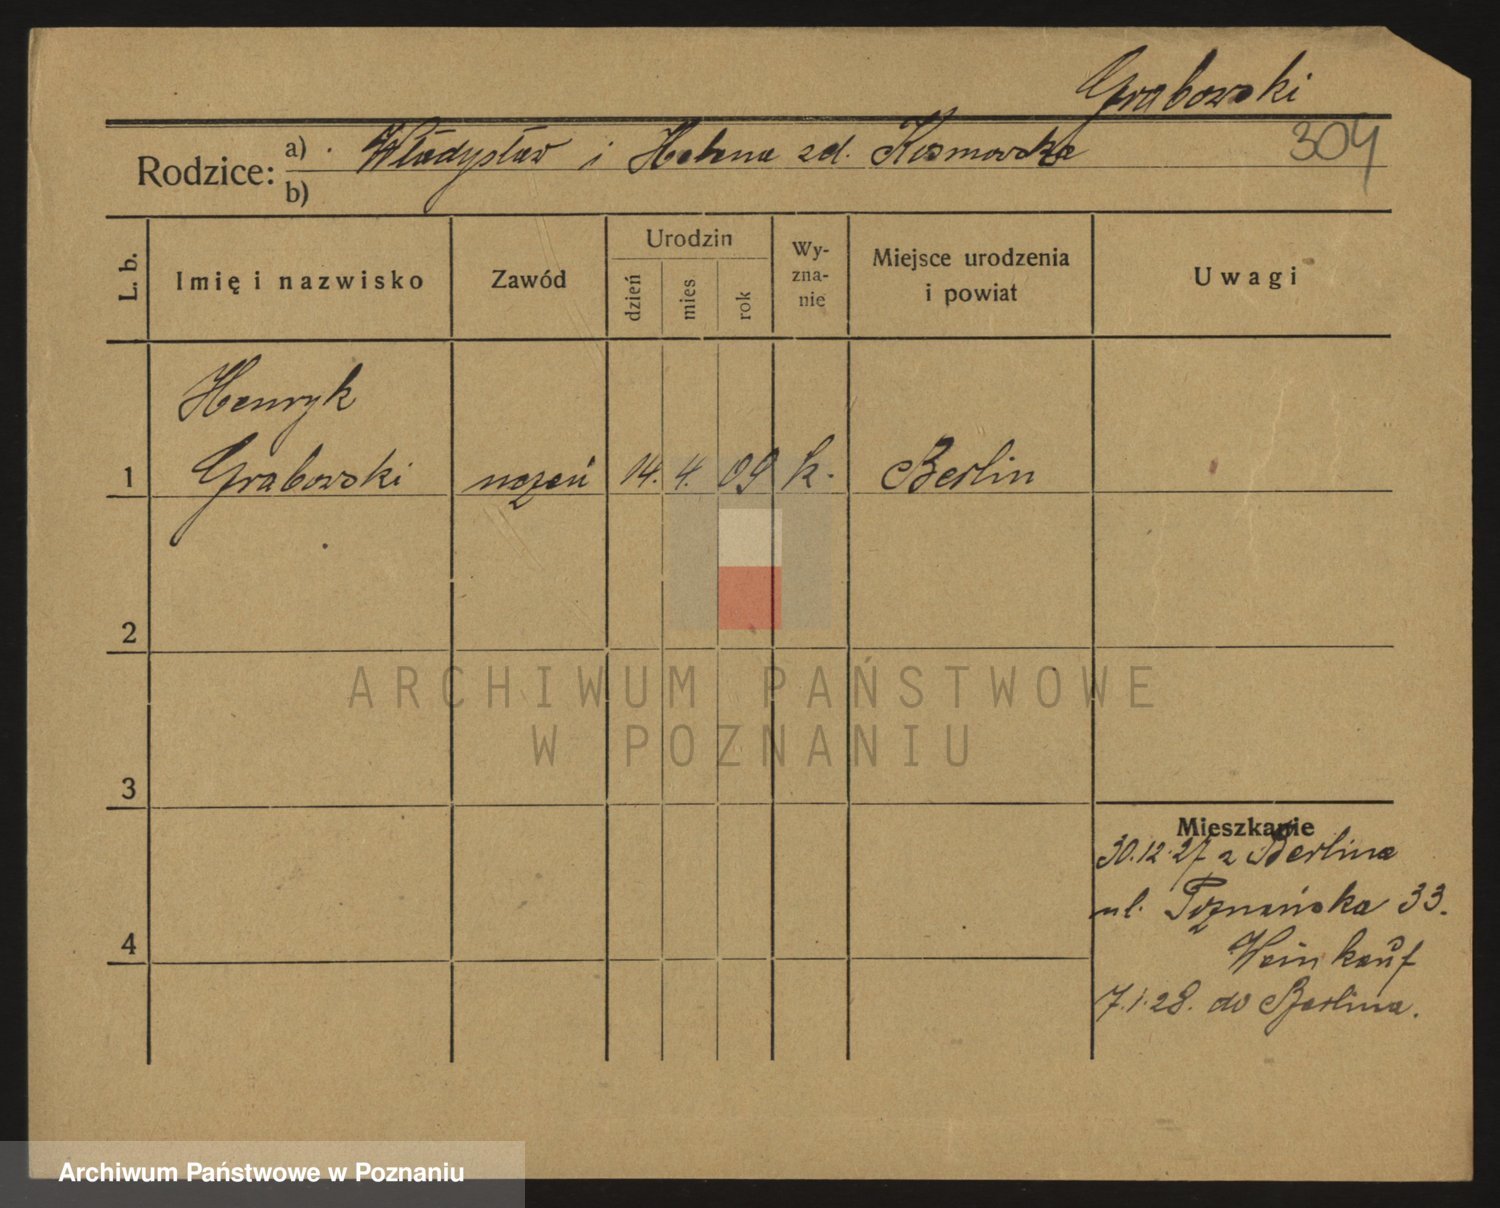 Grabowski
304
Rodzice: a) Władysław i Helena zd. Kosmowska
b)
L. b.
Imię i nazwisko
Zawód
Urodzin
dzień
mies
rok
Wy-
zna-
nie
Miejsce urodzenia
i powiat
Uwagi
Henryk
1 Grabowski uczeń 14. 4. 09 k. Berlin
2
ARCHIWUM PAŃSTWOWE
W POZNANIU
3
Mieszkanie
30.12.27 z Berlina
ul. Poznańska 33.
4
Weinkauf
7.1.28. do Berlina.
Archiwum Państwowe w Poznaniu